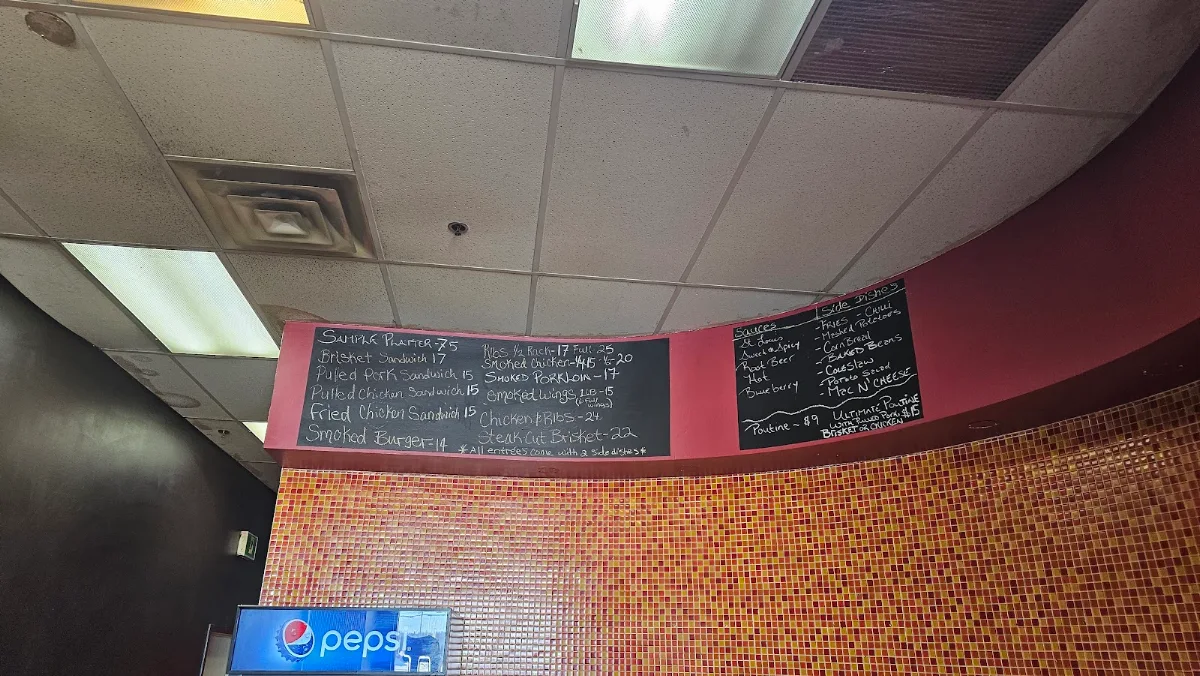 Sample Platter - 75
Brisket Sandwich 17
Pulled Pork Sandwich 15
Pulled Chicken Sandwich 15
Fried Chicken Sandwich 15
Smoked Burger - 14
Ribs 1/2 Rack - 17 Full - 25
Smoked Chicken - 1/4 15 1/2 - 20
Smoked Porkloin - 17
Smoked Wings, 1LB - 15
(6 Full wings)
Chicken & Ribs - 24
Steak Cut Brisket - 22
*All entrées come with 2 side dishes*
Sauces
St. Louis
Sweet & Spicy
Root Beer
Hot
Blueberry
Side Dishes
- Fries - Chili
- Mashed Potatoes
- Corn Bread
- Baked Beans
- Coleslaw
- Potato Salad
- Mac N' Cheese
Poutine - $9
Ultimate Poutine
with Pulled Pork,
Brisket or Chicken $15
pepsi